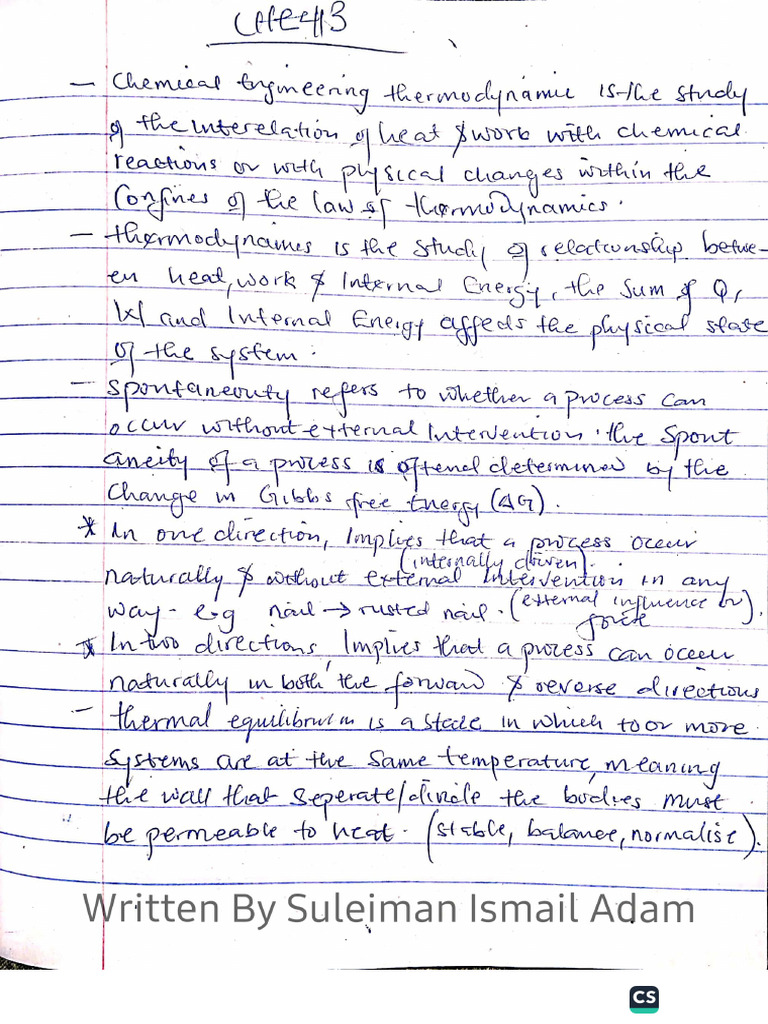 CHE413
– Chemical Engineering thermodynamic is the study
of the interelation of heat & work with chemical
reactions or with physical changes within the
Confines of the law of thermodynamics.
– thermodynames is the study of relationship betwe-
en heat, work & Internal Energy, the sum of Q,
W and Internal Energy affects the physical state
of the system.
– spontaneouty refers to whether a process can
occur without external Intervention. the Spont
aneity of a process is oftend determined by the
Change in Gibbs free Energy (ΔG).
* In one direction, Implies that a process occur
(internally driven).
naturally & without external Intervention in any
way - e.g nail → rusted nail. (external influence or
force).
* In two directions, Implies that a process can occur
naturally in both the forward & reverse directions
– thermal equilibrium is a state in which to or more
systems are at the same temperature, meaning
the wall that seperate/divide the bodies must
be permeable to heat. (stable, balance, normalise).
Written By Suleiman Ismail Adam
CS